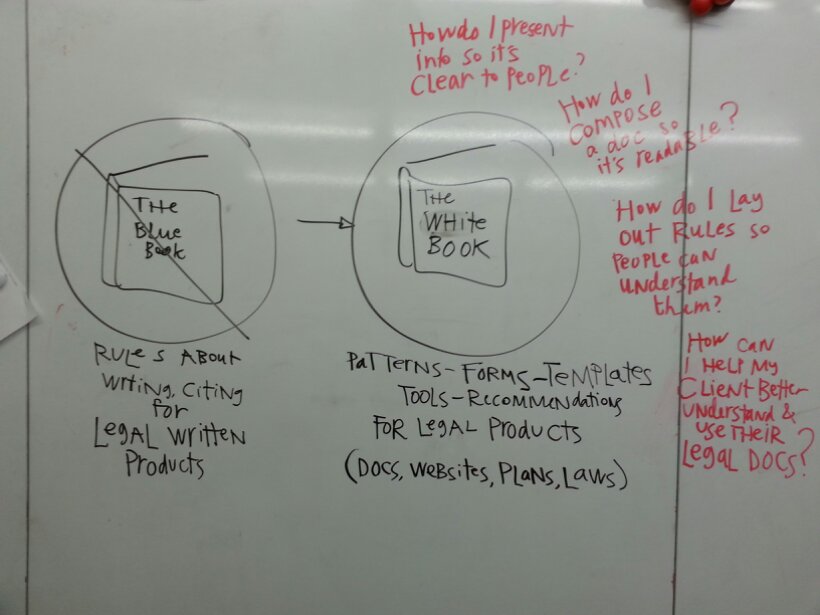 How do I present
info so it's
clear to people?
How do I
compose
a doc so
it's readable?
THE
BLUE
BOOK
THE
WHITE
BOOK
How do I Lay
out Rules so
People can
understand
them?
RULES ABOUT
writing, citing
for
LEGAL WRITTEN
Products
PATTERNS-FORMS-TEMPLATES
TOOLS-RECOMMENDATIONS
FOR LEGAL PRODUCTS
(DOCS, WEBSITES, PLANS, LAWS)
HOW CAN
I HELP MY
CLIENT BETTER
understand &
use THEIR
LEGAL DOCS?